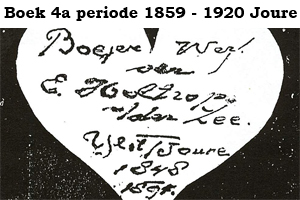 Boek 4a periode 1859 - 1920 Joure
Boejer Werf
van
E. Holtrop
v/der Zee.
Ylst Joure
1848
1894.